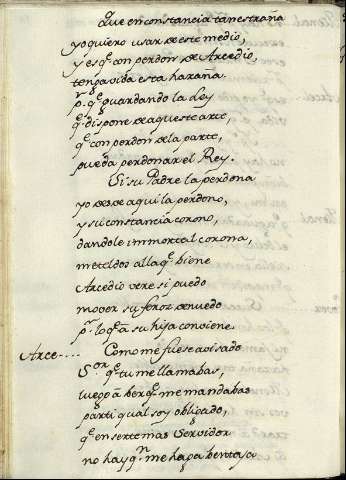 Que en constancia tan estraña
yo quiero usar de este medio,
y es q̃ con perdon de Arcedio,
tenga vida esta hazaña.
Pr. q̃ guardando la Ley
q̃ dispone de aqueste arte,
q̃ con perdon de la parte,
pueda perdonar el Rey.
Si su Padre la perdona
yo desde aqui la perdono,
y su constancia corono,
dandole immortal corona,
meteldos alla q̃ biene
Arcedio vere si puedo
mover su feroz denuedo
pr. lo q̃ â su hija conviene
Arce---- Como me fuese avisado
Sor. q̃ tu me llamabas,
luego â ber q̃ me mandabas
partí qual soy obligado,
q̃ en serte mas Servidor
no hay qn. me haga bentaja